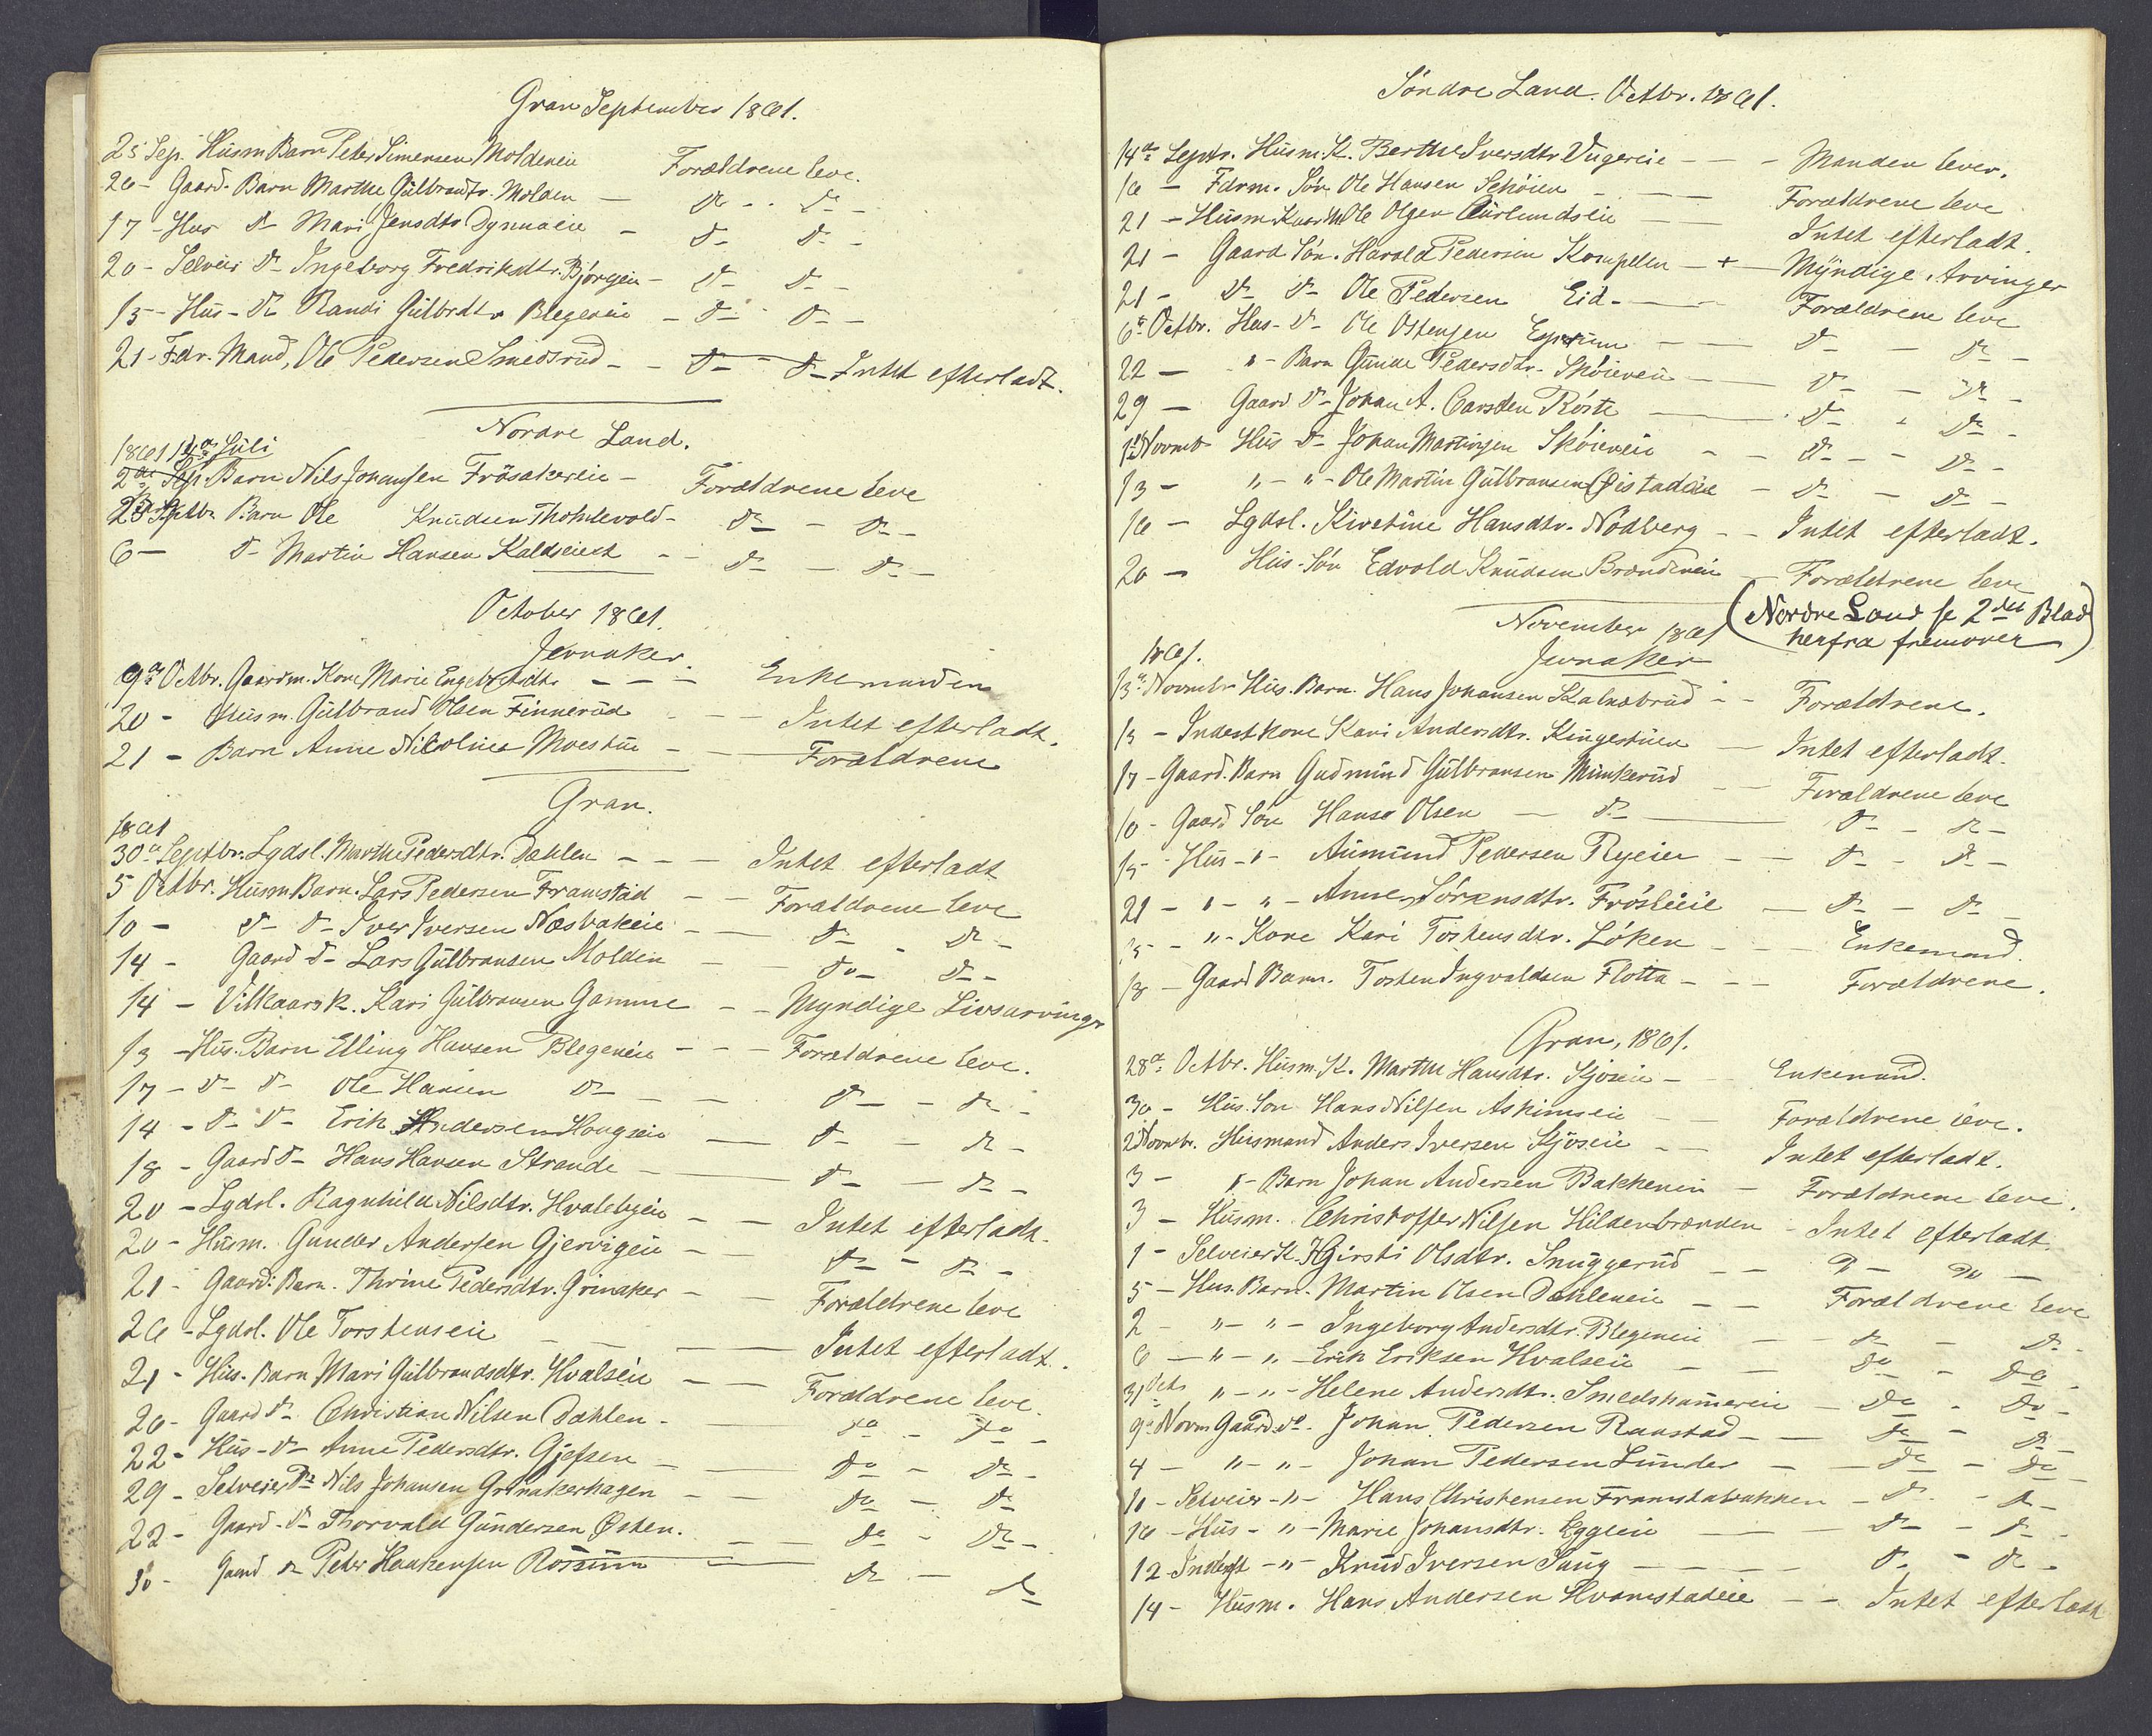 Gran September 1861.
25 Sep. Husm Barn Peter Simensen Moldeneie Forældrene leve.
20 - Gaard. Barn Marthe Gulbrandtr. Molden - do - do -
17 - Hus do Mari Jensdtr Dynnaeie - do - do -
20 - Selveier do Ingeborg Fredriksdtr. Bjørgeie - do - do -
13 - Hus - do Randi Gulbrdtr Blegeneie - do - do -
21 - Fdr. Mand, Ole Pedersen Smedsrud - - do - do - Intet efterladt.
Nordre Land.
1861 14de Juli
2den Sep Barn Nils Johansen Frøsakereie - Forældrene leve
23 Septbr Barn Ole Knudsen Thohlevold - do - do -
6 - do - Martin Hansen Kaldseiet - - do - do -
October 1861.
Jevnaker.
9de Octbr. Gaardm. Kone Marie Engebretsdtr - - - Enkemanden
20 - Husm. Gulbrand Olsen Finnerud - - Intet efterladt.
21 - Barn Anne Nicoline Moestue - - Forældrene
Gran.
1861
30te Septbr. Lgdsl. Marthe Pedersdtr. Dæhlen - - - Intet efterladt
5 Octbr. Husm Barn. Lars Pedersen Framstad - - Forældrene leve
10 - do do - Iver Iversen Næsbakeie - - do - do -
14 - Gaard do - Lars Gulbransen Molden - - do - do -
14 - Vilkaarsk. Kari Gulbransen Gamme - - Myndige Livsarvinger
13 - Hus. Barn Elling Hansen Blegeneie - - - Forældrene leve.
17 - do - do - Ole Hansen do - - - do - do -
14 - do - do - Erik Andersen Hougseie - do - do -
18 - Gaard do - Hans Hansen Strande - - do - do -
20 - Lgdsl. Ragnhild Nilsdtr. Hvalebyeie - - Intet efterladt.
20 - Husm. Gunder Andersen Gjervigeie - - do - do -
21 - Gaard: Barn. Thrine Pedersdtr. Grinaker - - Forældrene leve
26 - Lgdsl. Ole Torstenseie - - - Intet efterladt.
21 - Hus. Barn Mari Gulbrandsdtr. Hvalseie - - Forældrene leve.
20 - Gaard do - Christian Nilsen Dæhlen - - do - do -
22 - Hus - do - Anne Pedersdtr. Gjefsen - - do - do -
29 - Selveier do Nils Johansen Grinakerhagen - - do - do
22 - Gaard - do - Thorvald Gundersen Østen. - - do - do -
30 - Gaard do Peter Haakensen Rossum - do - do
Søndre Land. Octbr. 1861.
14de Septr. Husm. K. Berthe Iversdtr. Vugereie - - - Manden lever.
16 - Fdrm. Søn Ole Hansen Schøien - - Forældrene leve
21 - Husm Ole Olsen Intet efterladt.
21 - Gaard Søn. Harald Pedersen Kompelen - + - Myndige Arvinger
21 - do do - Ole Pedersen Eid - - Forældrene leve
6te Octbr. Hus - do - Ole Ostensen - - do - do -
22 - " - Barn Gunde Pedersdtr. Skøieneie - - do - do -
29 - Gaard do - Johan A. Carsden Røste - do - do -
1ste Novmb Hus - do - Johan Martinsen Skøieneie - - do - - do -
13 - " - " - Ole Martin Gulbransen Øistadeie - do - do -
16 - Lgdsl. Kirstine Hansdtr. Nødberg - - Intet efterladt.
20 - Hus - Søn Edvold Knudsen Brændeneie - Forældrene leve
(Nordre Land se 2det Blad
herfra fremover)
November 1861
1861. Jevnaker
13de Novmbr Hus. Barn. Hans Johansen Skalnæbrud - - Forældrene.
13 - Inderst kone Kari Andersdtr. Kingestuen - Intet efterladt.
17 - Gaard. Barn Gudmund Gulbransen Munkerud - - Forældrene leve
10 - Gaard Søn Hans Olsen - do - do - do -
15 - Hus - " - Aumund Pedersen Ryeier - - do - do -
21 - " - " - Anne Sørensdtr. Frøsleie - do - do -
15 - " - Kone Kari Tostensdtr. Løken - - Enkemand.
18 - Gaard Barn. Tosten Ingvaldsen Flotta - - - Forældrene.
Gran, 1861.
28de Octbr. Husm. K. Marthe Hansdtr. Kjoseie - - Enkemand.
30 - Hus. Søn Hans Nilsen Askimseie - Forældrene leve.
2 Novmbr. Husmand Anders Iversen Kjoseie - - Intet efterladt.
3 - " - Barn Johan Andersen Bakkeneie - Forældrene leve.
3 - Husm. Christoffer Nilsen Hildenbrænden - Intet efterladt.
1 - Selveier K. Kjersti Olsdtr. Snuggerud - - do - do -
5 - Hus. Barn. Martin Olsen Dæhleneie - - Forældrene leve
2 - " - " - Ingeborg Andersdtr. Blegeneie - do - do -
6 - " - " - Erik Eriksen Hvalseie - - do - do -
31 Octr " - " - Helene Andersdtr. Smedshameren - do - do -
9de Novm Gaard. do. Johan Pedersen Raastad - - do - do -
4 - " - " - Johan Pedersen Lunder - - do - do -
10 - Selveier - " - Hans Christensen Framstabakken - do - do -
16 - Hus - " - Marie Johansdtr. Eggeie - do - do -
12 Inderst - " - Knud Iversen Saug - - - do - do -
14 - Husm. Hans Andersen Hvamstadeie - - Intet efterladt